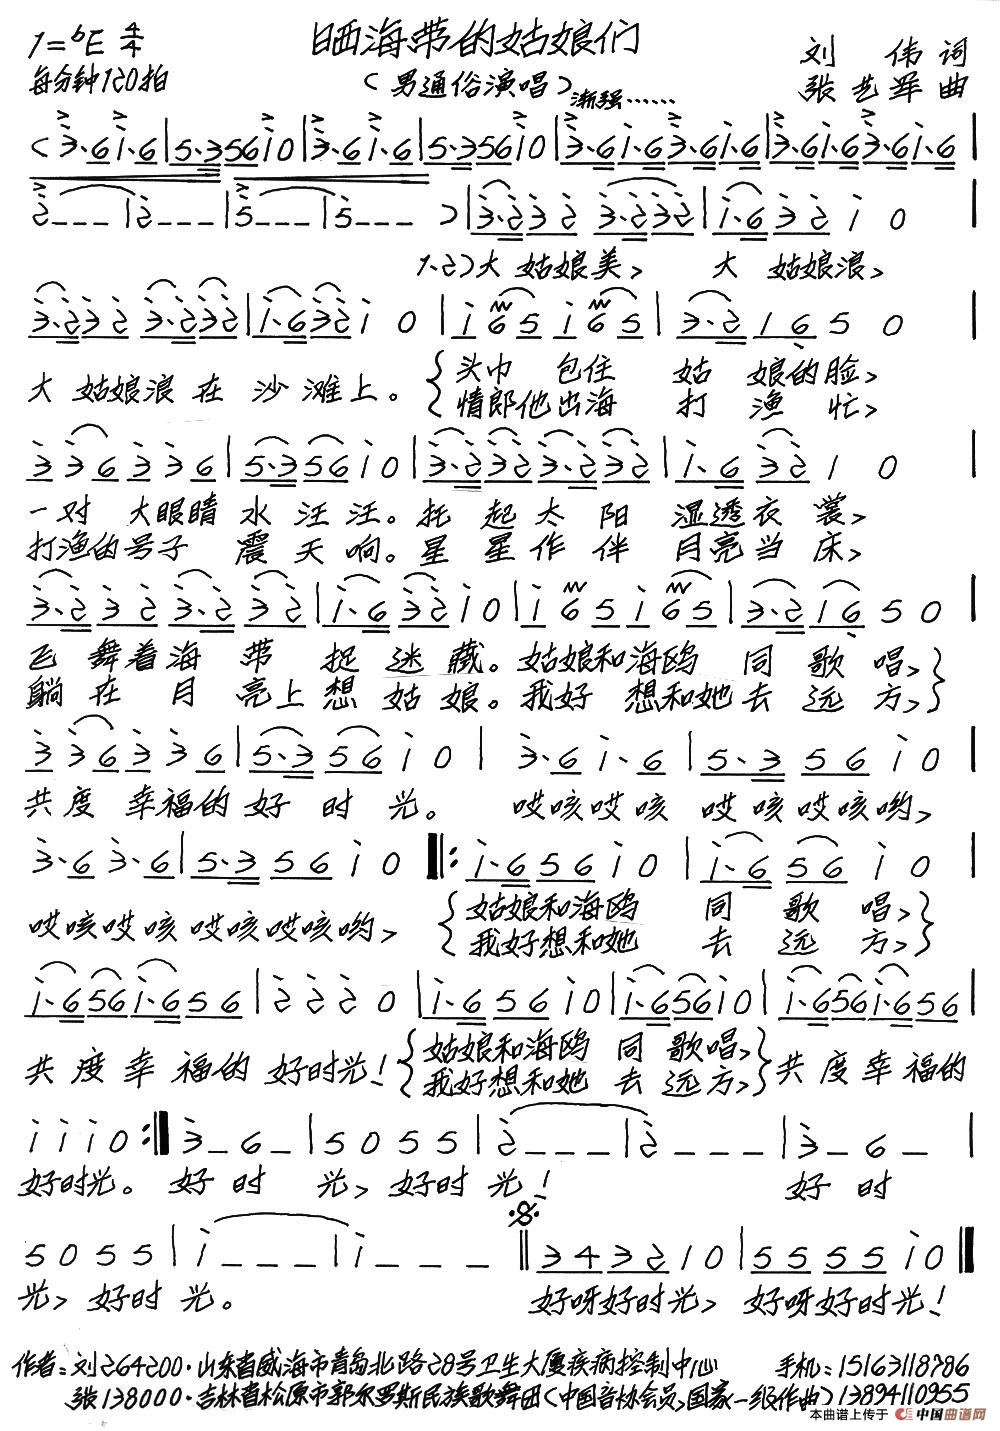 1=♭E 4/4 晒海带的姑娘们 刘 伟 词
每分钟120拍 (男通俗演唱) 张艺军 曲
渐强……
(3·6 i·6 | 5·3 56 i 0 | 3·6 i·6 | 5·3 56 i 0 | 3·6 i·6 3·6 i·6 | 3·6 i·6 3·6 i·6 |
2 - - - | 2 - - - | 5 - - - | 5 - - - ) | 3·2 3 2 3·2 3 2 | i·6 3 2 i 0 |
1.2)大 姑娘美, 大 姑娘浪,
3·2 3 2 3·2 3 2 | i·6 3 2 i 0 | i 6 5 i 6 5 | 3·2 1 6 5 0 |
大 姑娘浪 在 沙 滩上。 头巾 包住 姑 娘的脸,
情郎他出海 打 渔 忙,
3 3 6 3 3 6 | 5·3 5 6 i 0 | 3·2 3 2 3·2 3 2 | i·6 3 2 1 0 |
一对 大眼睛 水 汪 汪。托 起 太 阳 湿透衣 裳,
打渔的号子 震 天 响。星 星作 伴 月亮当 床,
3·2 3 2 3·2 3 2 | i·6 3 2 i 0 | i 6 5 i 6 5 | 3·2 1 6 5 0 |
飞 舞着海 带 捉 迷 藏。姑娘和海鸥 同 歌 唱,
躺 在 月 亮上 想 姑 娘。我好 想和她去 远 方,
3 3 6 3 3 6 | 5·3 5 6 i 0 | 3·6 i·6 | 5·3 5 6 i 0 |
共度 幸福的 好 时 光。 哎咳哎咳 哎咳哎咳哟,
3·6 3·6 | 5·3 5 6 i 0 ‖: i·6 5 6 i 0 | i·6 5 6 i 0 |
哎咳哎咳 哎咳哎咳哟, 姑娘和海鸥 同 歌 唱,
我好想和她 去 远 方,
i·6 56 i·6 5 6 | 2 2 2 0 | i·6 5 6 i 0 | i·6 56 i 0 | i·6 56 i·6 56 |
共 度 幸 福的 好时光! 姑娘和海鸥 同 歌唱, 共 度 幸 福的
我好想和她 去 远方,
i i i 0 :‖ 3 - 6 - | 5 0 5 5 | 2 - - - | 2 - - - | 3 - 6 - |
好时光。 好 时 光, 好时 光! 好 时
5 0 5 5 | i - - - | i - - - ‖ 3 4 3 2 1 0 | 5 5 5 5 i 0 ‖
光, 好时 光。 好呀好时光, 好呀好时光!
作者:刘264200·山东省威海市青岛北路28号卫生大厦疾病控制中心 手机:15163118786
张138000·吉林省松原市郭尔罗斯民族歌舞团(中国音协会员,国家一级作曲)13894110955
本曲谱上传于 中国曲谱网